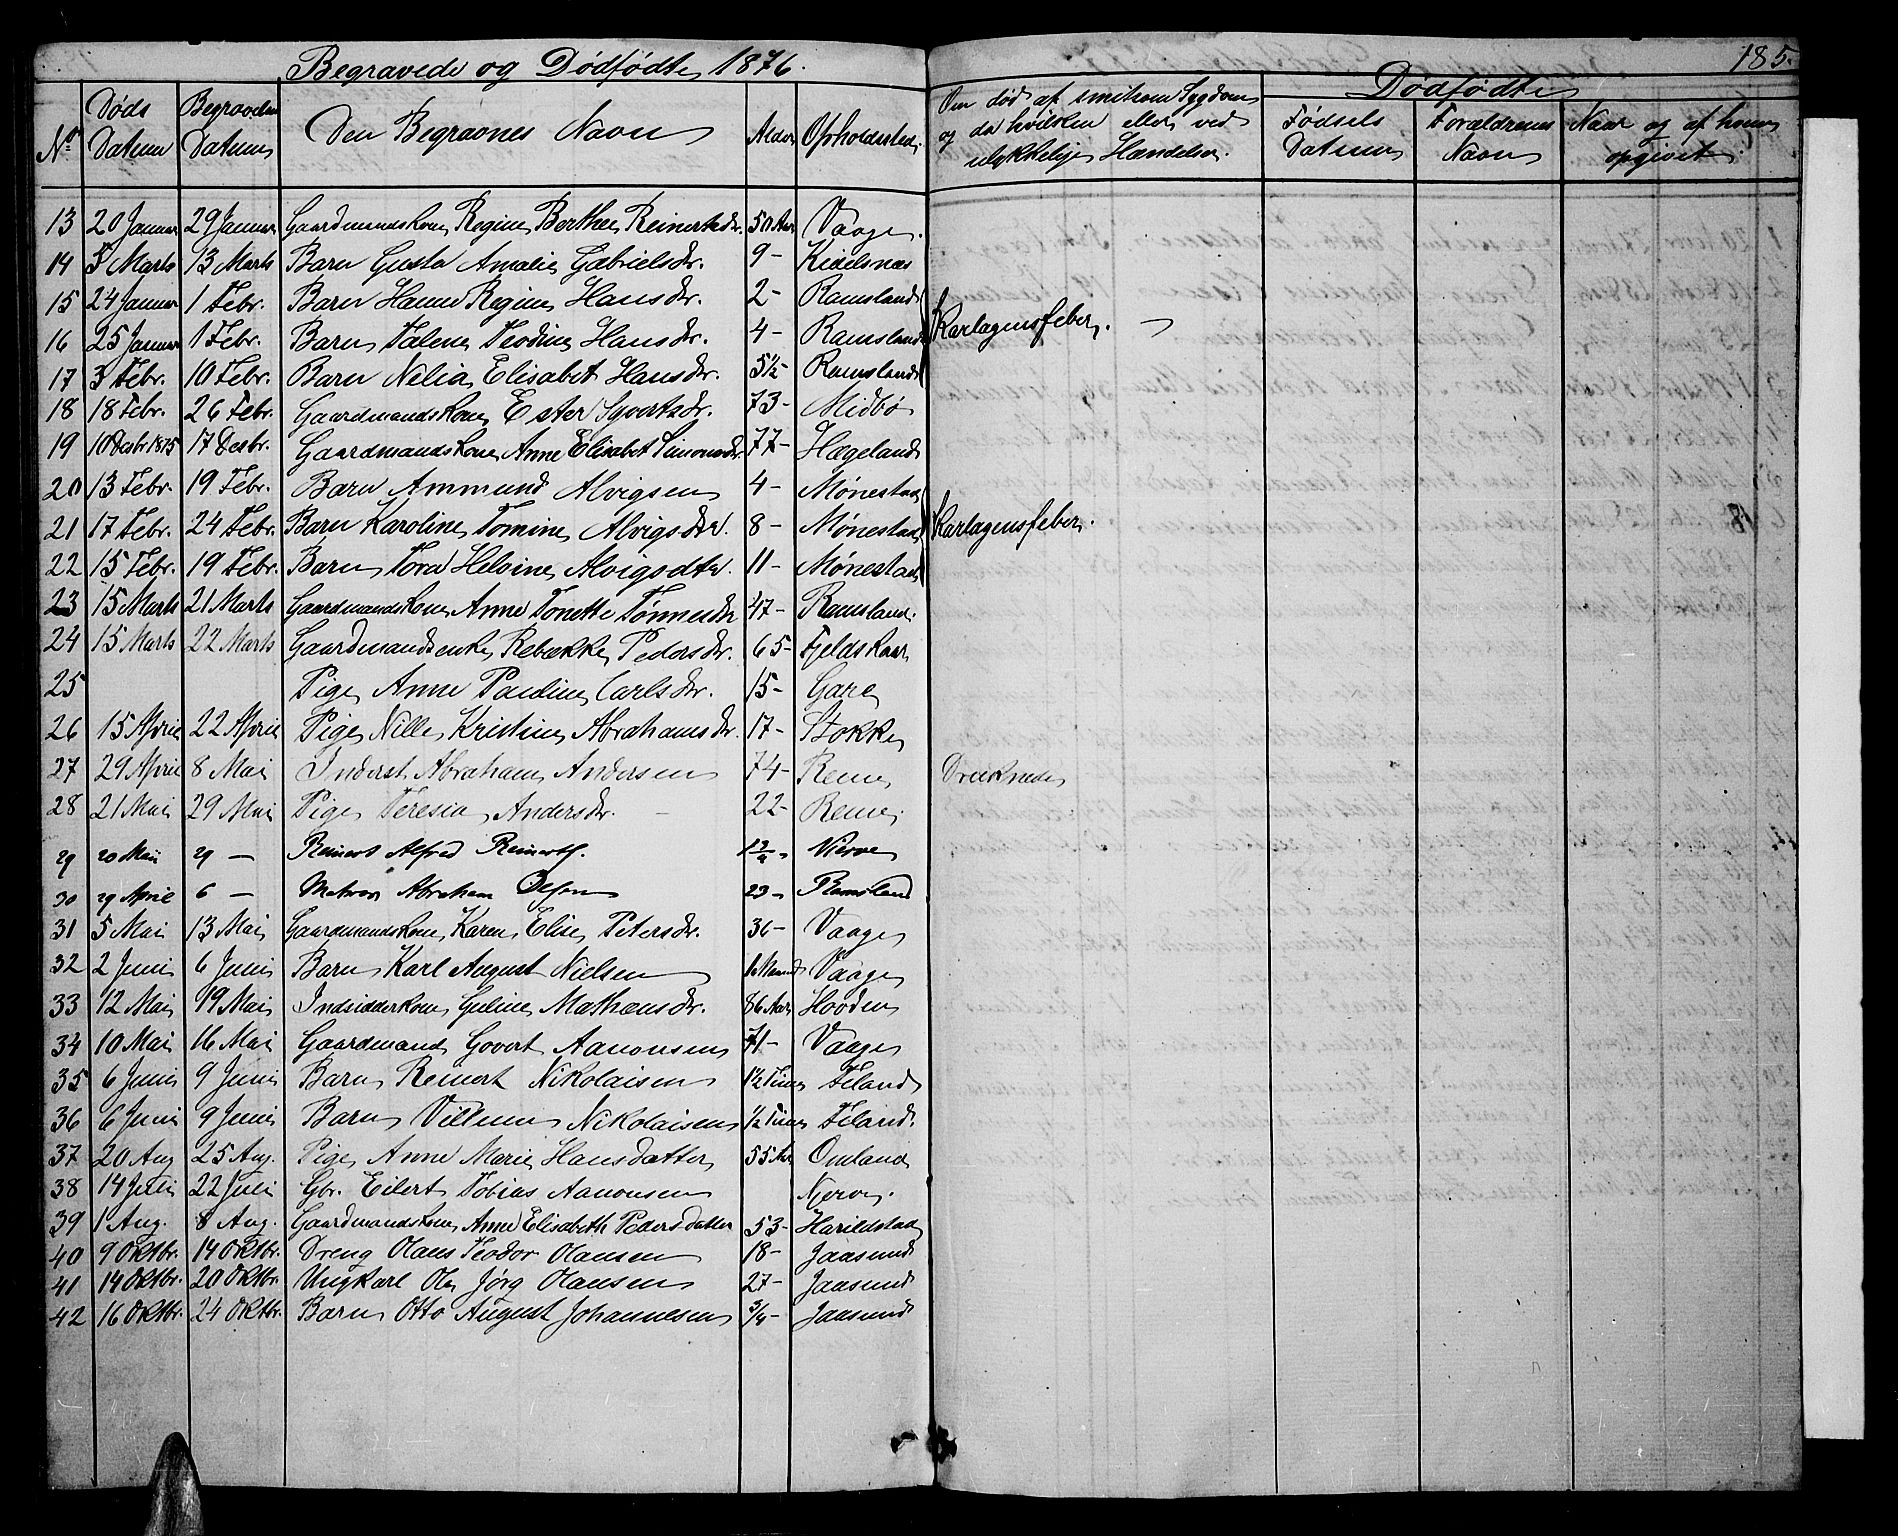 Begravede og Dødfødte 1876.
185.
No Døds Datum Begravelses Datum Den Begravnes Navn Alder Opholdssted.
Om død af smitsom Sygdom og da hvilken eller ved ulykkelige Hændelser.
Dødfødte
Fødsels Datum Forældrenes Navn Naar og af hvem opgivet
13 20 Januar 29 Januar Gaardmandskone Regine Berthea Reinertsdr. 50 Aar Vaage.
14 5 Marts 13 Marts Barn Gusta Amalie Gabrielsdr. 9 - Kidelsnæs
15 24 Januar 1 Febr. Barn Hanne Regine Hansdr. 2 - Ramsland
16 25 Januar 1 Febr. Barn Talene Teodine Hansdr. 4 - Ramsland Karlagensfeber.
17 3 Febr. 10 Febr. Barn Nelia Elisabet Hansdr. 5½ - Ramsland
18 18 Febr. 26 Febr. Gaardmandskone Ester Syvertsdr. 73 - Midbø
19 10 Desbr 1875 17 Desbr. Gaardmandskone Anne Elisabet Simonsdr. 77 - Hægeland
20 13 Febr. 19 Febr. Barn Ammund Alvigsen 4 - Mønestad
21 17 Febr. 24 Febr. Barn Karoline Tomine Alvigsdtr. 8 - Mønestad Karlagensfeber.
22 15 Febr. 19 Febr. Barn Tora Helvine Alvigsdtr. 11 - Mønestad
23 15 Marts 21 Marts Gaardmandskone Anne Tonette Tønnesdr 47 - Ramsland.
24 15 Marts 22 Marts Gaardmandsenke Rebække Pedersdr. 65 - Fjeldskaar
25 Pige Anne Pauline Carlsdr. 15 - Gare
26 15 April 22 April Pige Nille Kristine Abrahamsdr. 17 - Stokke
27 29 April 8 Mai Inderst Abraham Andersen 74 - Reme Druknede
28 21 Mai 29 Mai Pige Teresia Andersdr. 22 - Reme
29 20 Mai 29 — Reinert Alfred Reinerts. Nierve
30 29 April 6 — Matros Abraham Olsen 23 - Ramsland
31 5 Mai 13 Mai Gaardmandskone Karen Elise Petersdr. 36 - Vaage
32 2 Juni 6 Juni Barn Karl August Nielsen 1 Maaned Vaage
33 12 Mai 19 Mai Indsidderkone Guline Mathæusdr. 86 Aar Hovden
34 10 Mai 16 Mai Gaardmand Govert Aanonsen 71 - Vaage
35 6 Juni 9 Juni Barn Reinert Nikolaisen 1½ Time Filand
36 6 Juni 9 Juni Barn Villum Nikolaisen ½ Time Filand.
37 20 Aug 25 Aug. Pige Anne Marie Hansdatter 55 Aar Omland
38 14 Juli 22 Juli Gbr. Eilert Tobias Aanonsen Njerve.
39 1 Aug. 8 Aug. Gaardmandskone Anne Elisabeth Pedersdatter 53 - Harildstad
40 9 Oktbr. 14 Oktbr. Dreng Olaus Teodor Olausen 18 - Jaasund
41 14 Oktbr. 20 Oktbr. Ungkarl Ole Jørg Olausen 27 - Jaasund
42 16 Oktbr. 24 Oktbr. Barn Otto August Johannesen 3/4 - Jaasund